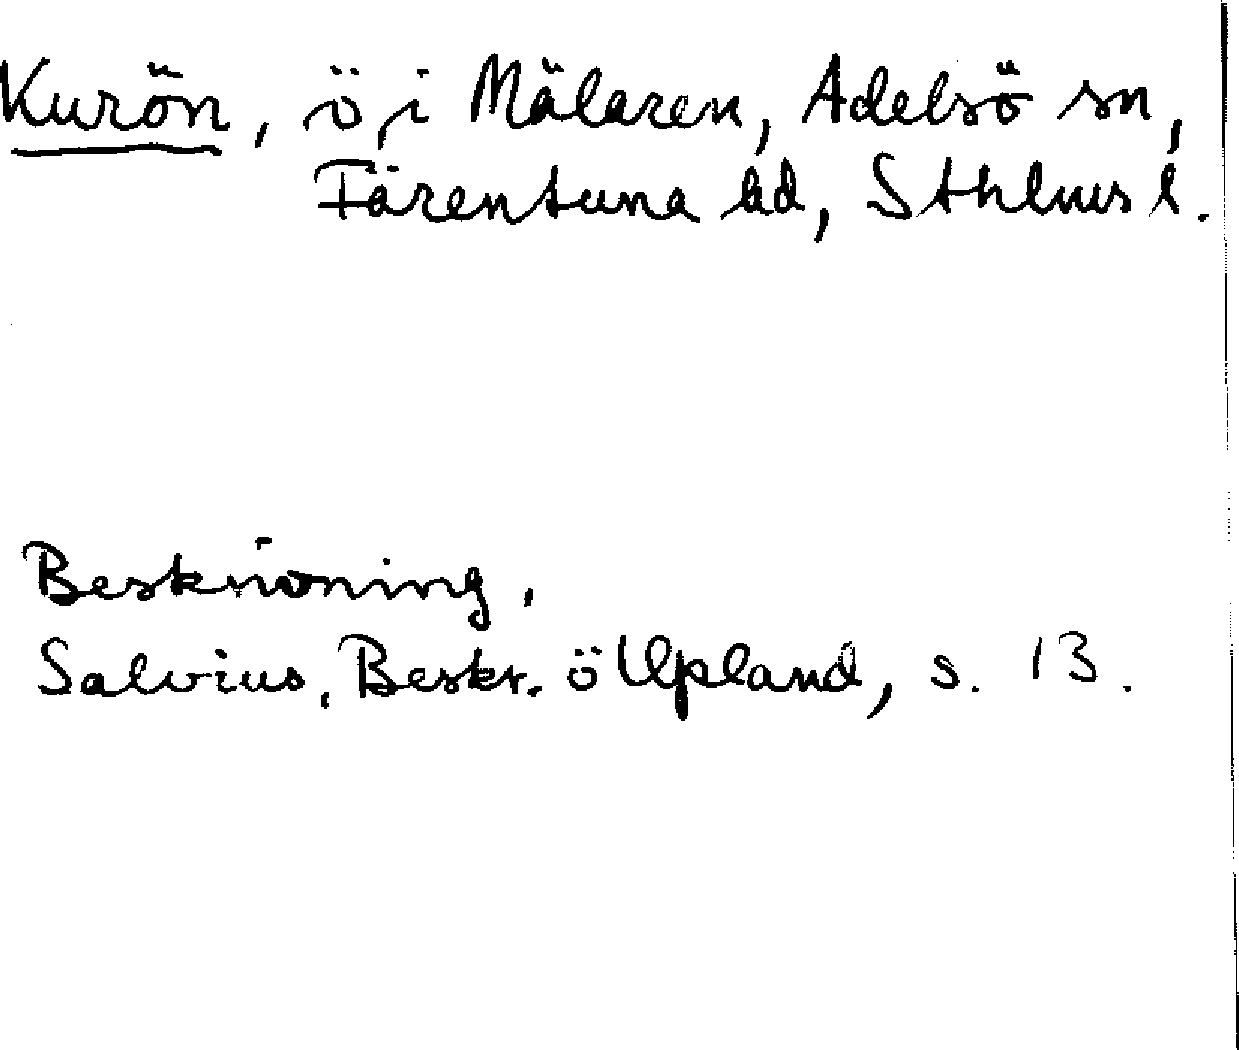 Kurön, ö, i Mälaren, Adelsö sn,
Färentuna hd, Sthlms l.
Beskrivning.
Salvius, Beskr. ö Uppland, s. 13.